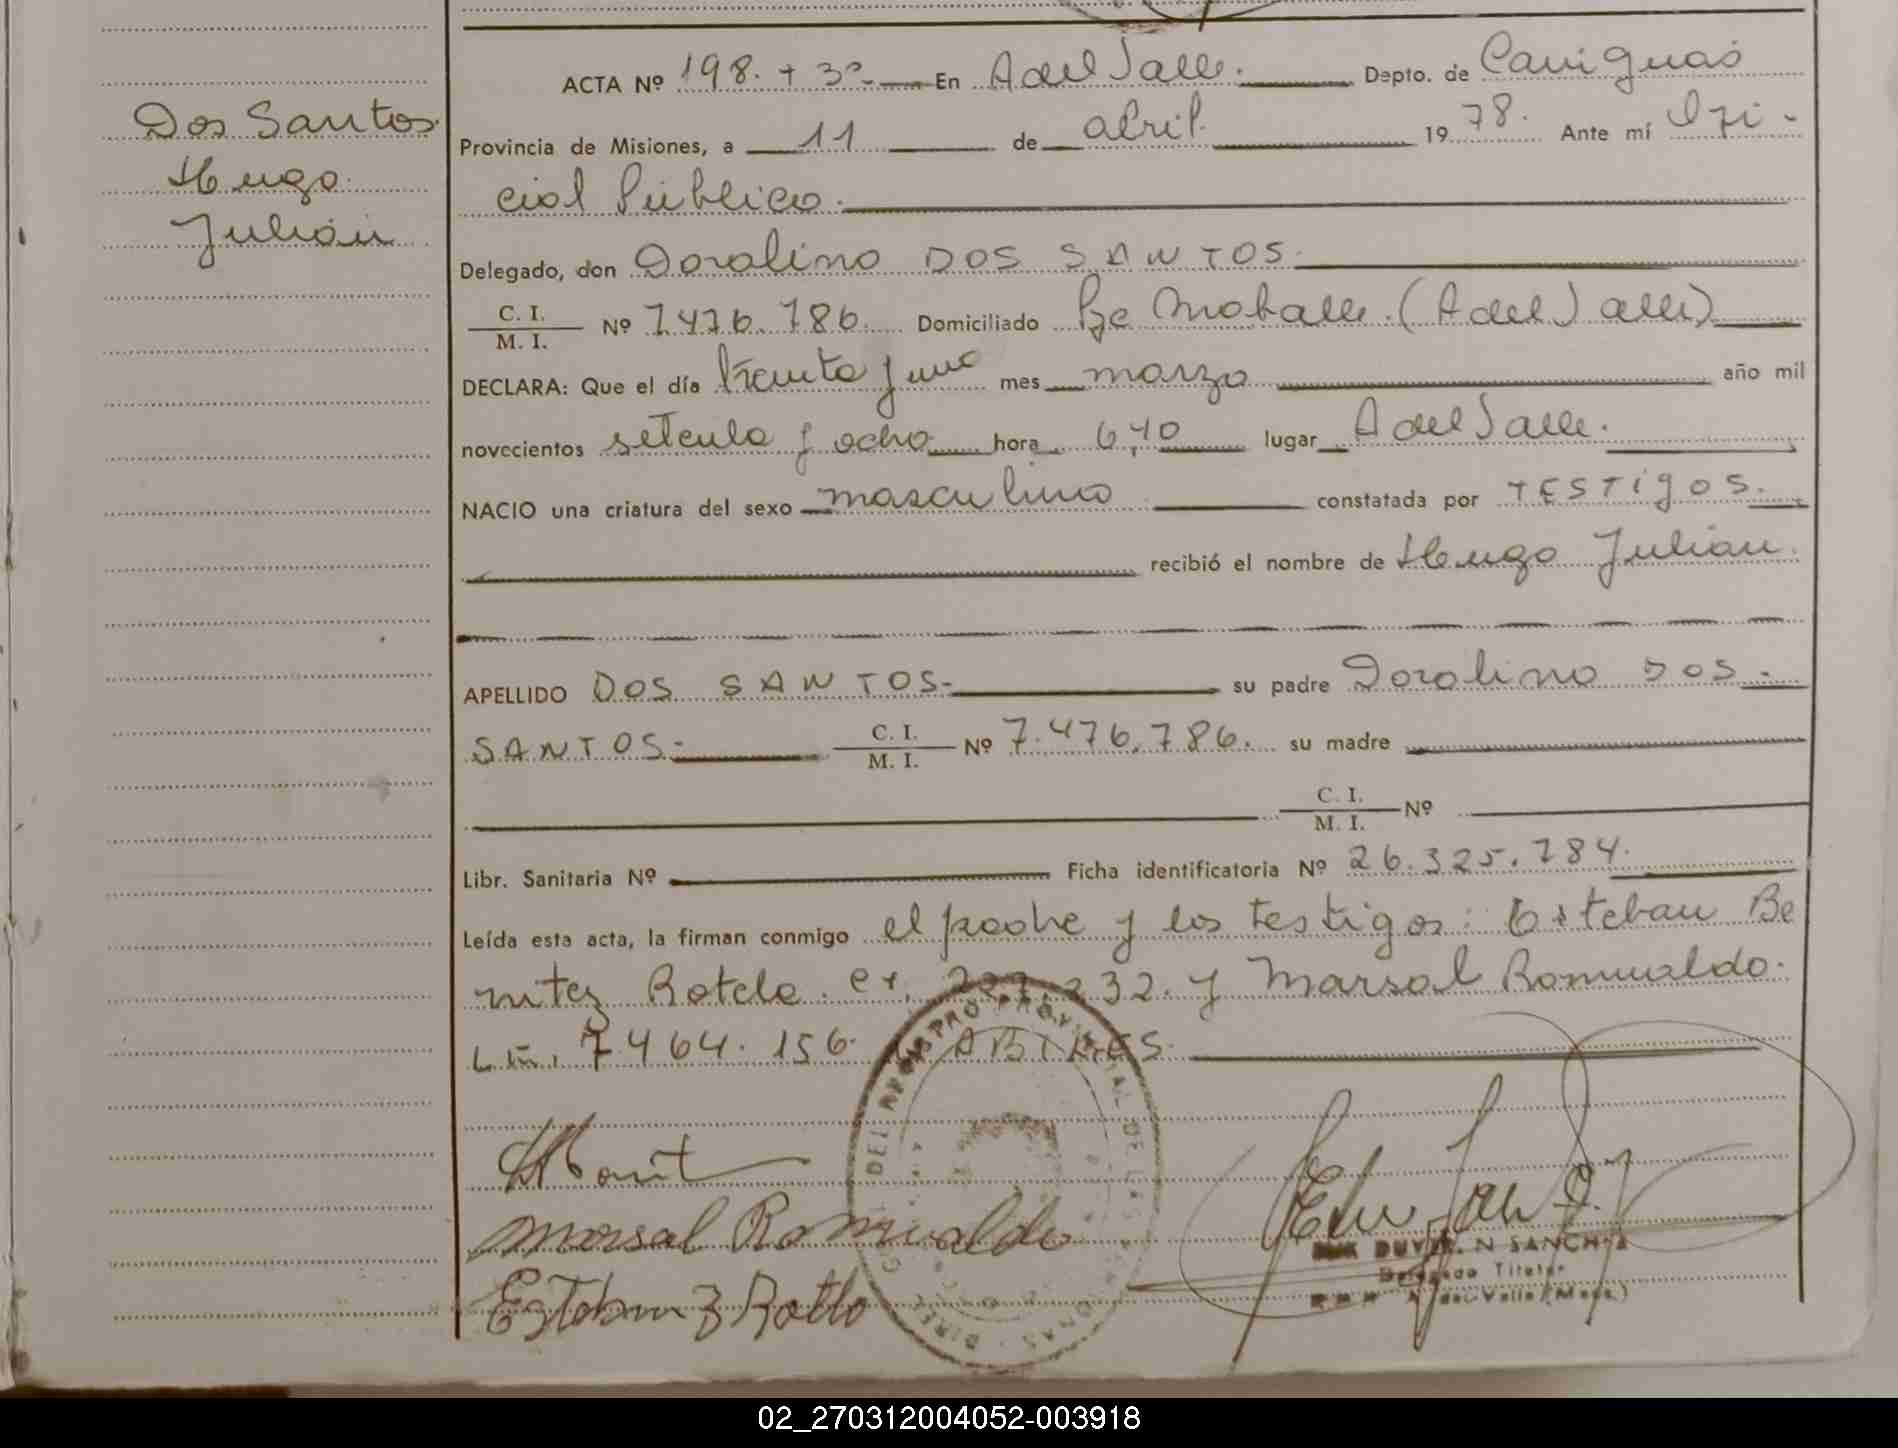 Dos Santos
Hugo
Julián
ACTA Nº 198. + 3º En A del Valle. Depto. de Cainguás
Provincia de Misiones, a 11 de abril. 1978. Ante mí Ofi-
cial Público.
Delegado, don Doralino DOS SANTOS.
C. I.
M. I. Nº 7.476.786. Domiciliado (A del Valle)
DECLARA: Que el día treinta y uno mes marzo año mil
novecientos setenta y ocho hora 6,40 lugar A del Valle.
NACIO una criatura del sexo masculino constatada por TESTIGOS.
recibió el nombre de Hugo Julián.
APELLIDO DOS SANTOS- su padre Doralino DOS-
SANTOS- C. I.
M. I. Nº 7.476.786. su madre
C. I.
M. I. Nº
Libr. Sanitaria Nº Ficha identificatoria Nº 26.325.784.
Leída esta acta, la firman conmigo el padre y los testigos: Esteban Be
nitez Rotela. 232. y Marsal Romualdo.
7.464.156. ABILES.
Marsal Romualdo
Esteban B Rotela
DEL REGISTRO PROVINCIAL DE LAS PERSONAS
Delegado Titular
A. del Valle (Mnes.)
02_270312004052-003918